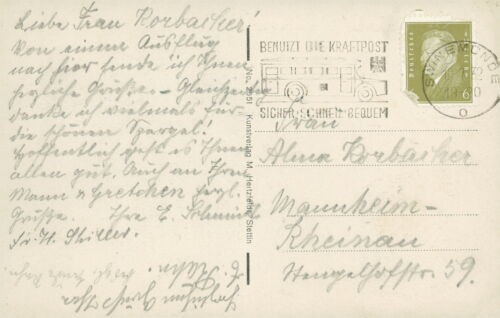 Liebe Frau Korbacher!
Von einem Ausflug
nach hier sende ich Ihnen
herzliche Grüße. Gleichzeitig
danke ich vielmals für
die schönen Spargel.
Hoffentlich geht es Ihnen
allen gut. Auch an Ihren
Mann u. Gretchen herzl.
Grüße. Ihre E.
Fr. H.
No. 2651 Kunstverlag M. Stettin
BENUTZT DIE KRAFTPOST
SICHER SCHNELL BEQUEM
Deutsches Reich
6
SWINEMÜNDE
Frau
Alma Korbacher
Mannheim-
Rheinau
Stengelhofstr. 59.